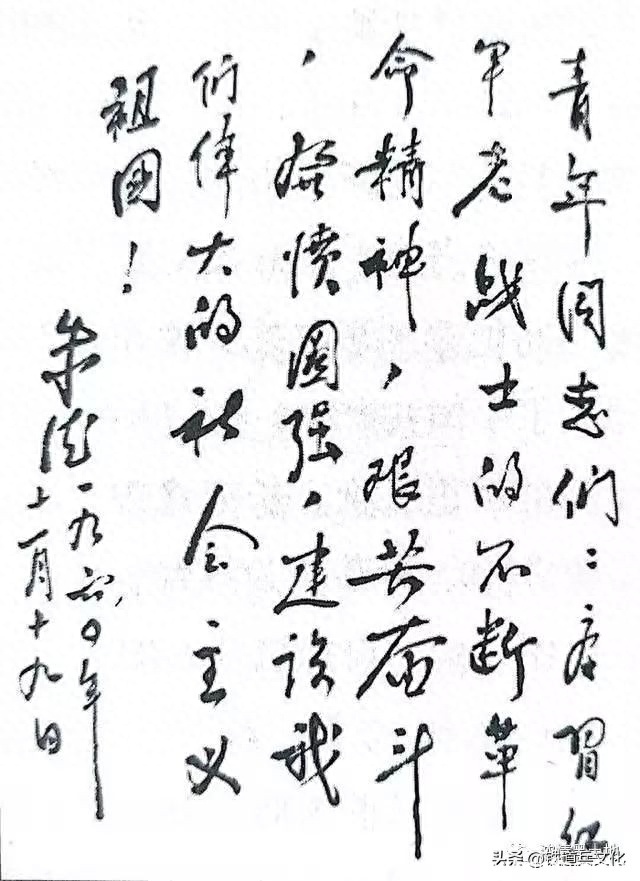 青年同志们：学习红
军老战士的不断革
命精神，艰苦奋斗
，发愤图强，建设我
们伟大的社会主义
祖國！
朱德 一九六〇年
月十九日
头条 @铁道兵文化